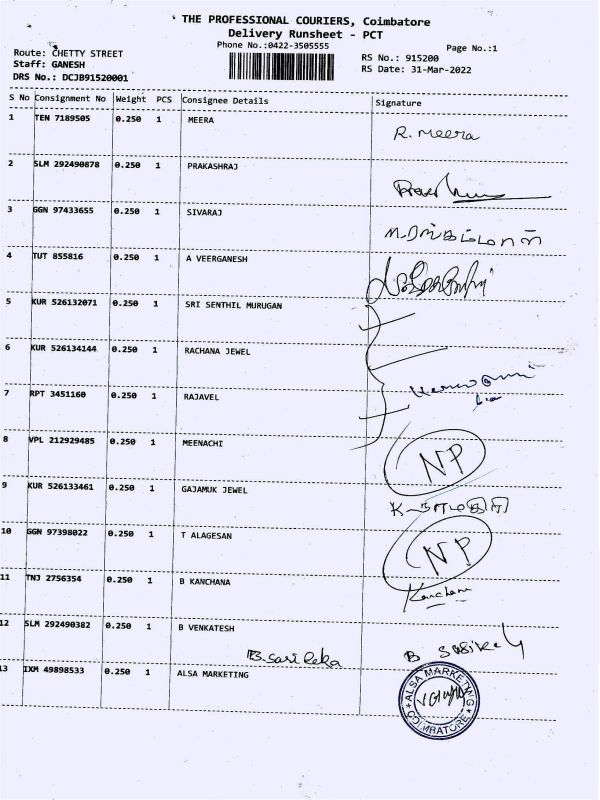 THE PROFESSIONAL COURIERS, Coimbatore
Delivery Runsheet - PCT
Phone No.:0422-3505555
Page No.:1
Route: CHETTY STREET
Staff: GANESH
DRS No.: DCJB91520001
RS No.: 915200
RS Date: 31-Mar-2022
S No Consignment No Weight PCS Consignee Details Signature
1 TEN 7189505 0.250 1 MEERA R. Meera
2 SLM 292490878 0.250 1 PRAKASHRAJ
3 GGN 97433655 0.250 1 SIVARAJ
4 TUT 855816 0.250 1 A VEERGANESH
5 KUR 526132071 0.250 1 SRI SENTHIL MURUGAN
6 KUR 526134144 0.250 1 RACHANA JEWEL
7 RPT 3451160 0.250 1 RAJAVEL
8 VPL 212929485 1 MEENACHI NP
9 KUR 526133461 0.250 1 GAJAMUK JEWEL
10 GGN 97398022 0.250 1 T ALAGESAN NP
11 TNJ 2756354 0.250 1 B KANCHANA
12 SLM 292490382 0.250 1 B VENKATESH
13 IXM 49898533 0.250 1 ALSA MARKETING
ALSA MARKETING
COIMBATORE